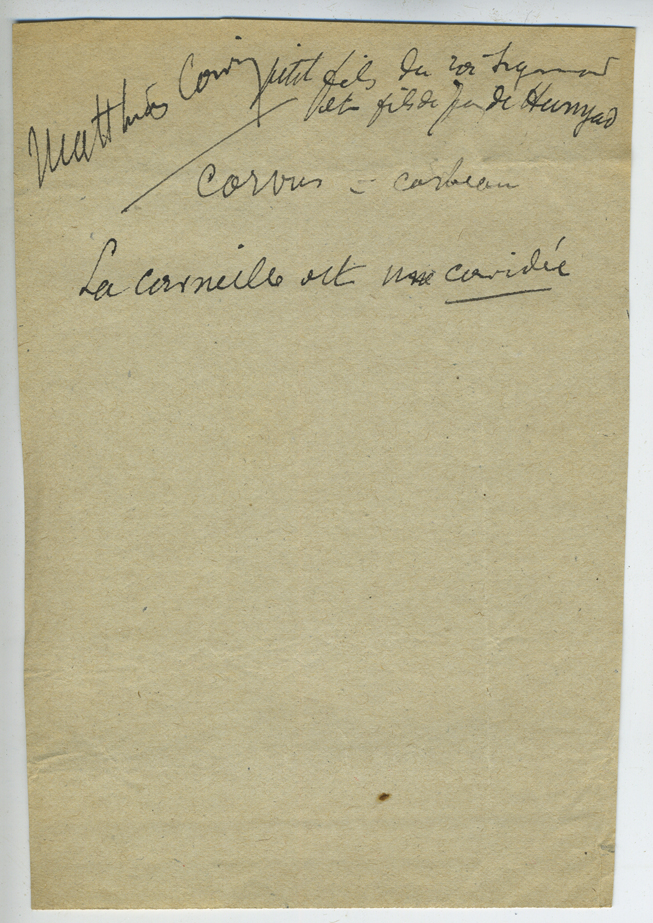 Matthias Corvin petit fils du roi Sigmond
et fils de Jean de Hunyad
corvus = corbeau
La corneille est une corvidée